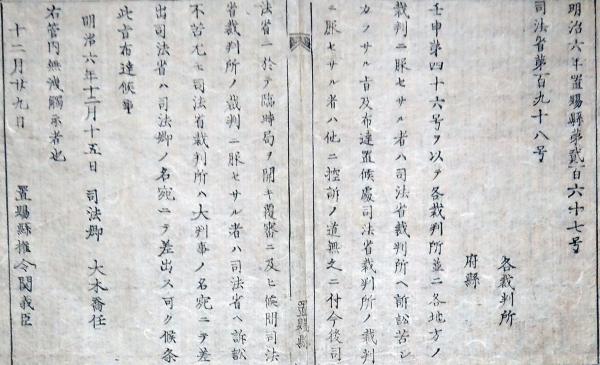 明治六年置賜縣第貳百六十七号
司法省第百九十八号
各裁判所
府縣
壬申第四十六号ヲ以テ各裁判所並ニ各地方ノ
裁判ニ服セサル者ハ司法省裁判所ヘ訴訟苦シ
カラサル旨及布達置候處司法省裁判所ノ裁判
ニ服セサル者ハ他ニ控訴ノ道無之ニ付今後司
置賜縣
法省ニ於テ臨時局ヲ開キ覆審ニ及ヒ候間司法
省裁判所ノ裁判ニ服セサル者ハ司法省ヘ訴訟
不苦尤モ司法省裁判所ハ大判事ノ名宛ニテ差
出司法省ハ司法卿ノ名宛ニテ差出ス可ク候条
此旨布達候事
明治六年十二月十五日 司法卿 大木喬任
右管内無洩觸示者也
十二月廿九日
置賜縣權令関義臣